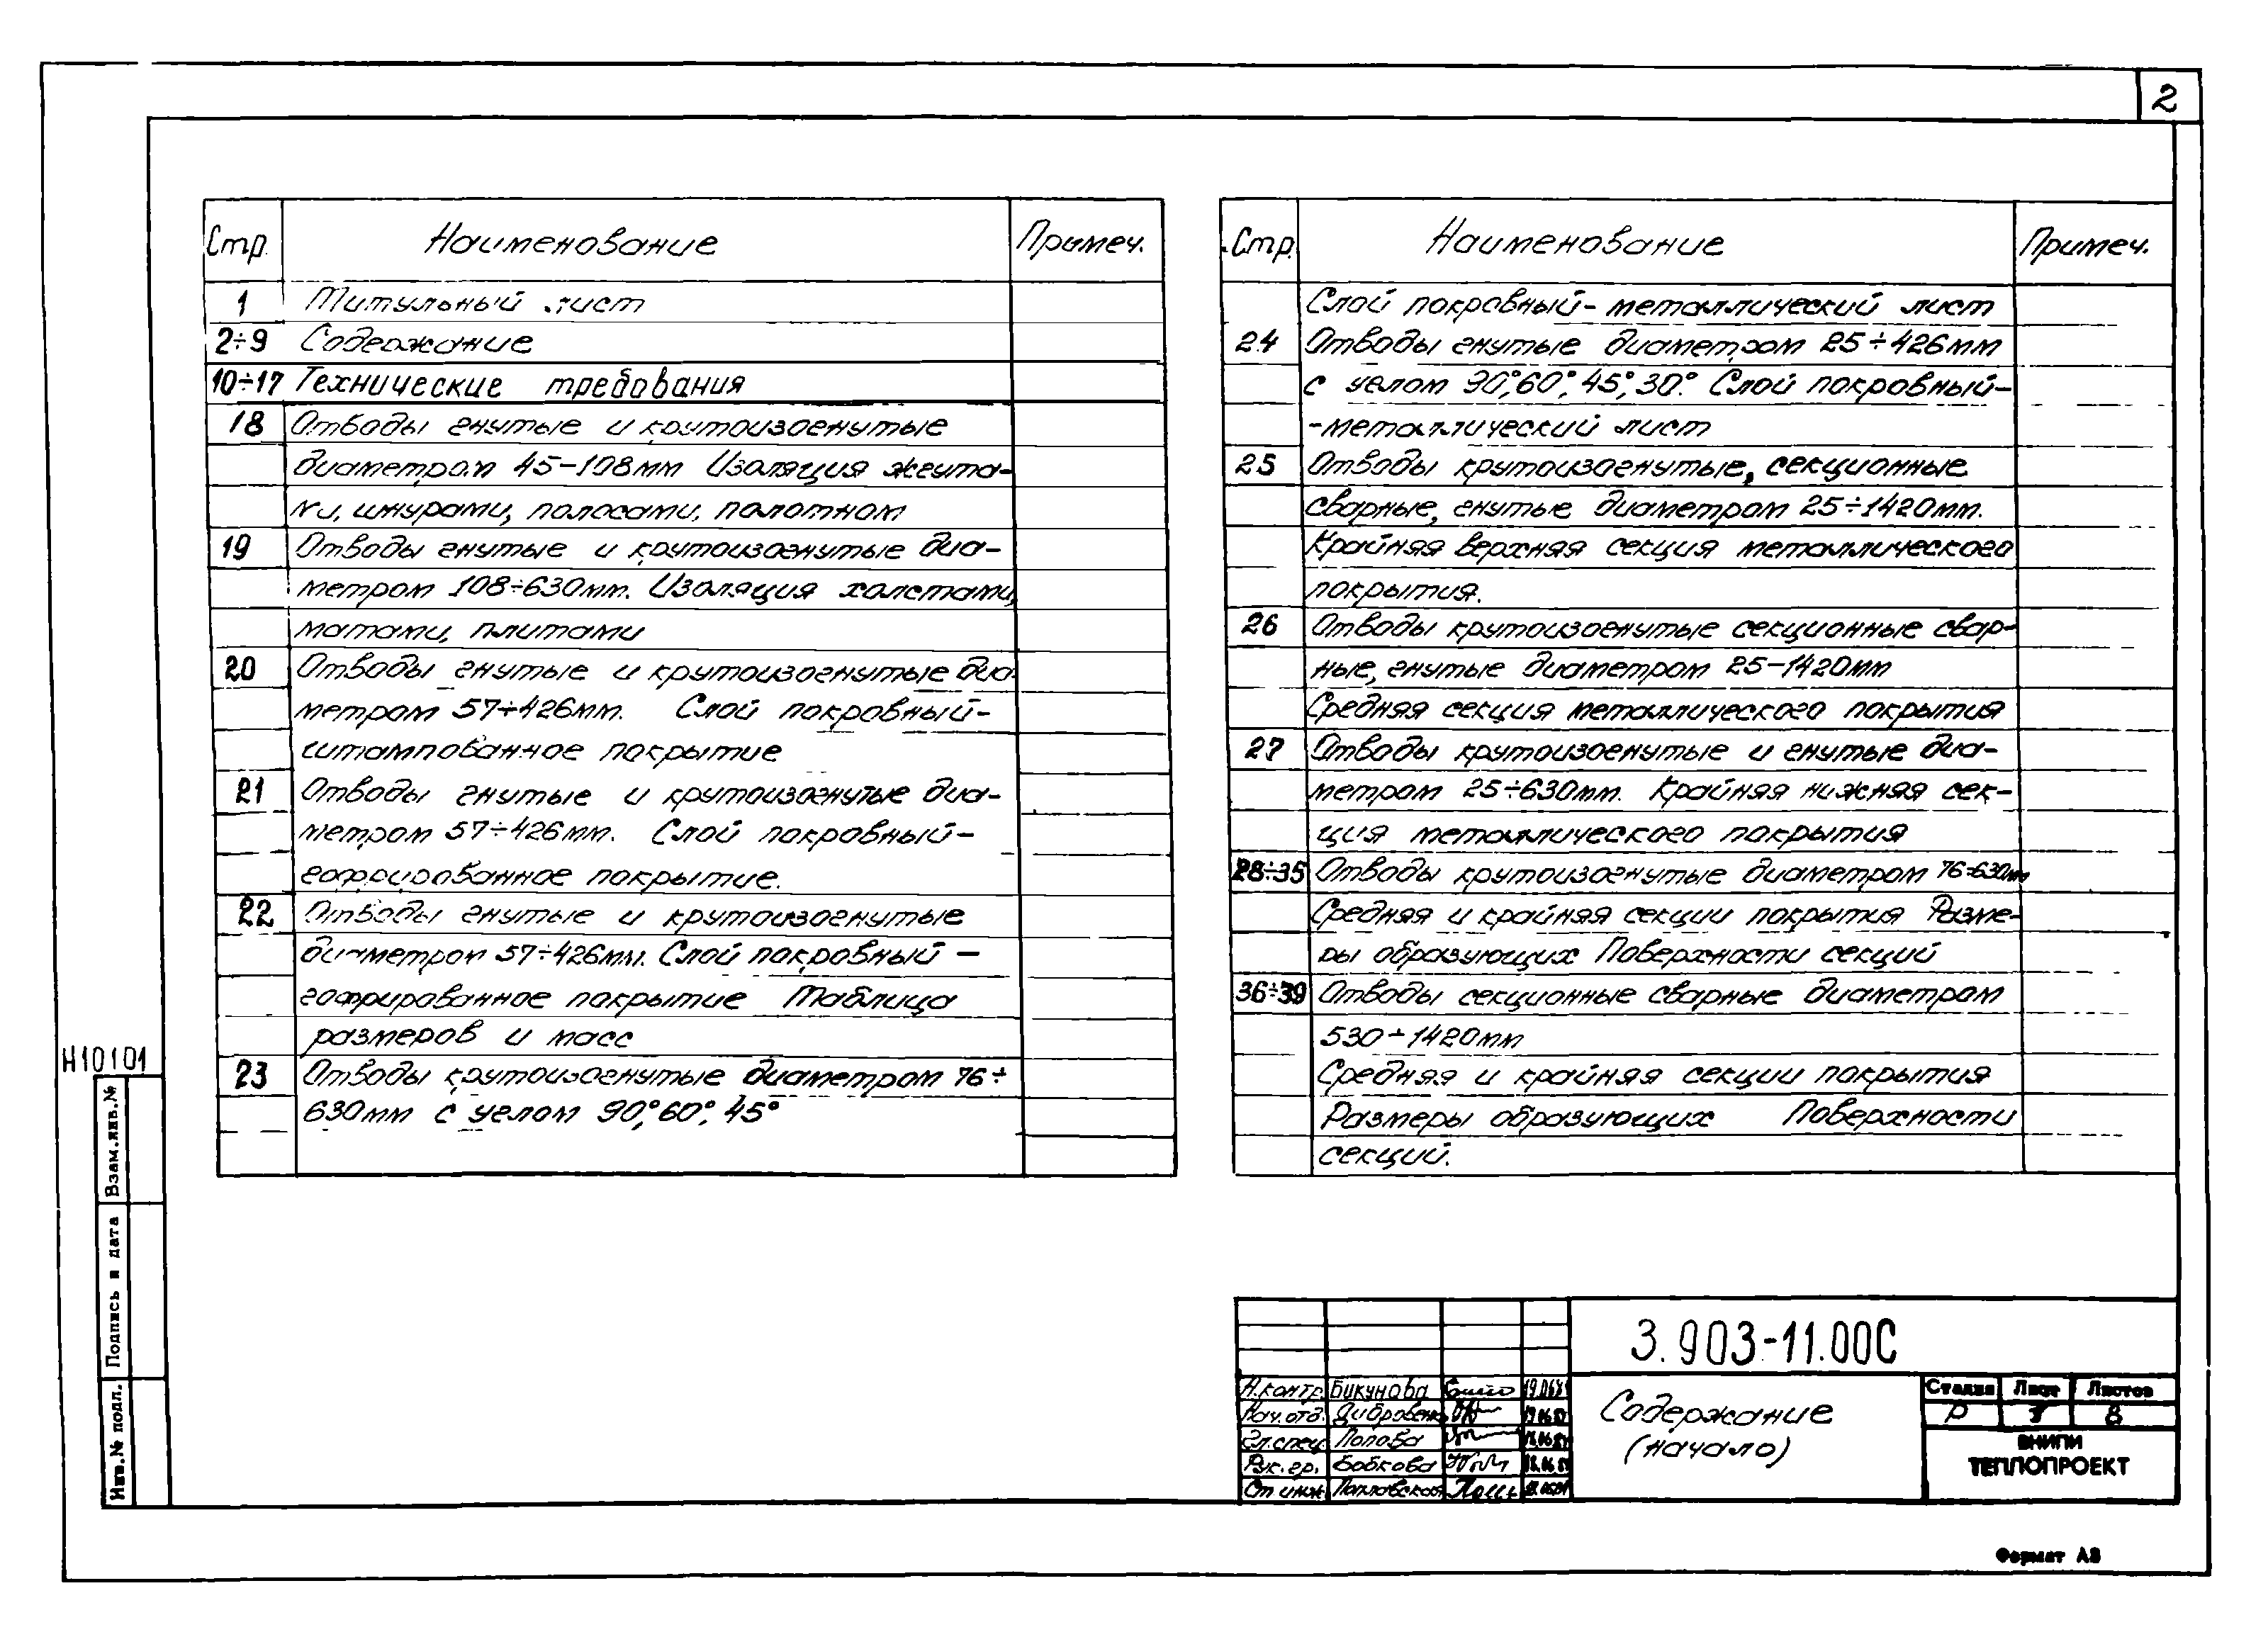 2
Стр. Наименование Примеч.
1 Титульный лист
2÷9 Содержание
10÷17 Технические требования
18 Отводы гнутые и крутоизогнутые
диаметром 45-108мм Изоляция жгута-
ми, шнурами, полосами, полотном
19 Отводы гнутые и крутоизогнутые диа-
метром 108÷630мм. Изоляция холстами,
матами, плитами
20 Отводы гнутые и крутоизогнутые диа-
метром 57÷426мм. Слой покровный-
штампованное покрытие
21 Отводы гнутые и крутоизогнутые диа-
метром 57÷426мм. Слой покровный-
гофрированное покрытие.
22 Отводы гнутые и крутоизогнутые
диаметром 57÷426мм. Слой покровный -
гофрированное покрытие Таблица
размеров и масс
23 Отводы крутоизогнутые диаметром 76÷
630мм с углом 90°, 60°, 45°
Стр. Наименование Примеч.
Слой покровный-металлический лист
24 Отводы гнутые диаметром 25÷426мм
с углом 90°, 60°, 45°, 30°. Слой покровный-
-металлический лист
25 Отводы крутоизогнутые, секционные
сварные, гнутые диаметром 25÷1420мм.
Крайняя верхняя секция металлического
покрытия.
26 Отводы крутоизогнутые секционные свар-
ные, гнутые диаметром 25-1420мм
Средняя секция металлического покрытия
27 Отводы крутоизогнутые и гнутые диа-
метром 25÷630мм. Крайняя нижняя сек-
ция металлического покрытия
28÷35 Отводы крутоизогнутые диаметром 76÷630мм
Средняя и крайняя секции покрытия Разме-
ры образующих Поверхности секций
36÷39 Отводы секционные сварные диаметром
530÷1420мм
Средняя и крайняя секции покрытия
Размеры образующих Поверхности
секций.
Н10101
Взам.инв.№
Подпись и дата
Инв.№ подл.
3.903-11.00С
Н.контр. Бикунова
Нач.отд.
Гл.спец. Попова
Рук.гр. Бобкова
Ст инж.
Содержание
(начало)
Стадия Лист Листов
Р 8
ВНИПИ
ТЕПЛОПРОЕКТ
Формат А3